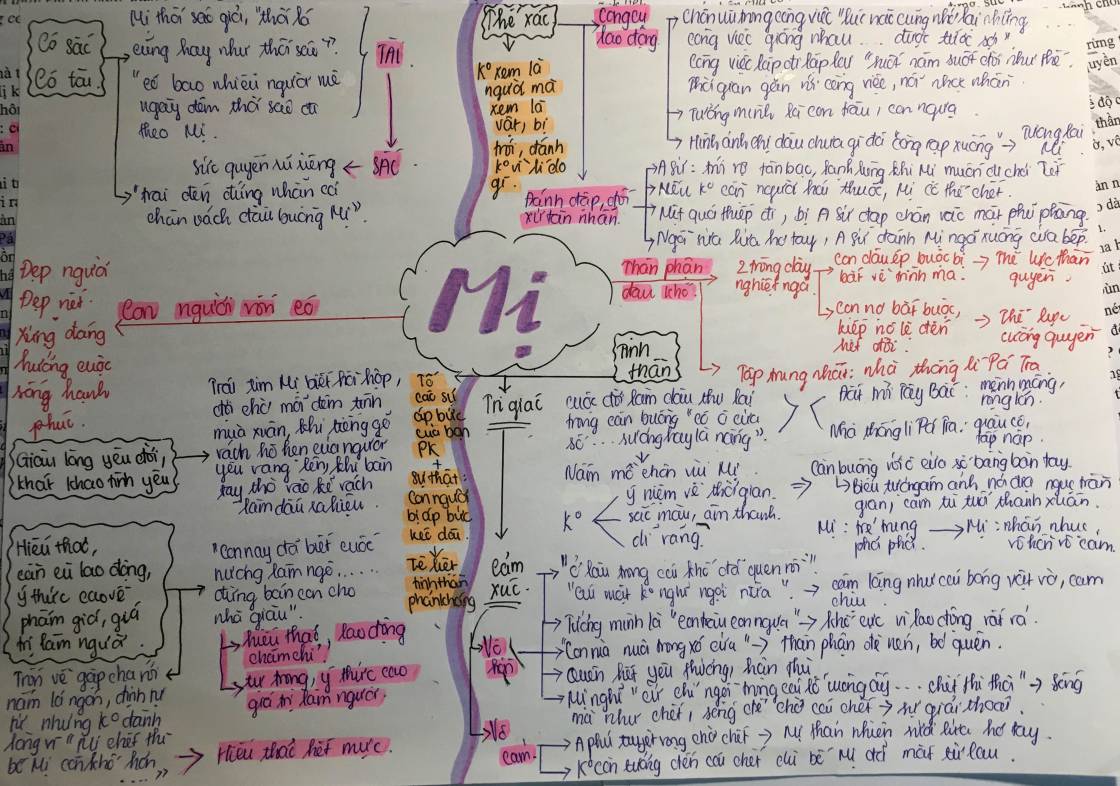 Mị
Con người vốn có
Đẹp người
Đẹp nết.
Xứng đáng
hưởng cuộc
sống hạnh
phúc.
Có sắc
Có tài
TÀI
Mị thổi sáo giỏi, "thổi lá
cũng hay như thổi sáo".
"có bao nhiêu người mê
ngày đêm thổi sáo đi
theo Mị.
SẮC
sức quyến rũ riêng
"trai đến đứng nhẵn cả
chân vách đầu buồng Mị".
Giàu lòng yêu đời,
khát khao tình yêu
Trái tim Mị biết hồi hộp,
đợi chờ mỗi đêm tình
mùa xuân, khi tiếng gõ
vách hò hẹn của người
yêu vang lên, khi bàn
tay thò vào kẽ vách
làm dấu ra hiệu.
Hiếu thảo,
cần cù lao động,
ý thức cao về
phẩm giá, giá
trị làm người.
"Con nay đã biết cuốc
nương làm ngô.....
đừng bán con cho
nhà giàu"
hiếu thảo, lao động
chăm chỉ,
tự trọng, ý thức cao
giá trị làm người,
Trốn về gặp cha rồi
nắm lá ngón, định tự
tử nhưng k° đành
lòng vì "Mị chết thì
bố Mị còn khổ hơn
....."
Hiếu thảo hết mực.
Thân phận
đau khổ.
2 tròng dây
nghiệt ngã
Con dâu ép buộc bị
bắt về trình ma.
Thế lực thần
quyền.
Con nợ bắt buộc,
kiếp nô lệ đến
hết đời.
Thế lực
cường quyền
Tập trung nhất: nhà thống lí Pá Tra
Thể xác
k° xem là
người mà
xem là
vật, bị
trói, đánh
k° vì lí do
gì.
Công cụ
lao động
Chôn vùi trong công việc "lúc nào cũng nhớ lại những
công việc giống nhau... được tước sợi"
Công việc lặp đi lặp lại "suốt năm suốt đời như thế.
Thời gian gắn với công việc, nỗi nhọc nhằn
Tưởng mình là con trâu, con ngựa
Hình ảnh chị dâu chưa già đã "còng rạp xuống"
Tương lai
Mị
Đánh đập, đối
xử tàn nhẫn.
A Sử: trói rõ tàn bạo, lạnh lùng khi Mị muốn đi chơi Tết
Nếu k° cần người hái thuốc, Mị có thể chết.
Mệt quá thiếp đi, bị A Sử đạp chân vào mặt phũ phàng.
Ngồi sưởi lửa hơ tay, A Sử đánh Mị ngã xuống cửa bếp.
Tinh
thần
Tố
cáo sự
áp bức
của bọn
PK
+
Sự thật:
Con người
bị áp bức
kéo dài.
Tê liệt
tinh thần
phản kháng
Tri giác
cuộc đời làm dâu thu lại
trong căn buồng "có ô cửa
sổ... sương hay là nắng".
Đất trời Tây Bắc: mênh mông,
rộng lớn.
Nhà thống lí Pá Tra: giàu có,
tấp nập.
Nấm mồ chôn vùi Mị
k°
ý niệm về thời gian.
sắc màu, âm thanh.
dĩ vãng.
Căn buồng với ô cửa sổ bằng bàn tay.
Biểu tượng ám ảnh nơi địa ngục trần
gian, cầm tù tuổi thanh xuân.
Mị: trẻ trung
phơi phới.
Mị: nhẫn nhục,
vô hồn vô cảm.
Cảm
xúc.
Vô
hồn
"Ở lâu trong cái khổ đã quen rồi".
"Cúi mặt k° nghĩ ngợi nữa".
câm lặng như cái bóng vật vờ, cam
chịu
Tưởng mình là "con trâu con ngựa"
khổ cực vì lao động vất vả.
"Con rùa nuôi trong xó cửa"
thân phận đè nén, bỏ quên.
Quên hết yêu thương, hận thù
Mị nghĩ "cứ chỉ ngồi trong cái lỗ vuông ấy... chết thì thôi"
sống
mà như chết, sống chỉ chờ cái chết
sự giải thoát.
Vô
cảm.
A phủ tuyệt vọng chờ chết
Mị thản nhiên sưởi lửa hơ tay.
K° còn tưởng đến cái chết dù bố Mị đã mất từ lâu.